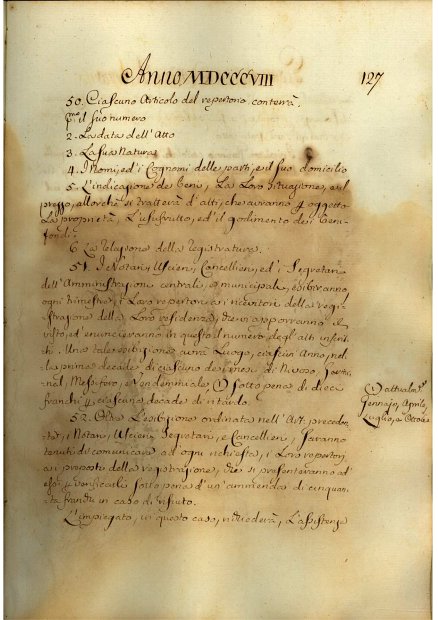 Anno MDCCCVIII 127
50. Ciascuno Articolo del repertorio conterrà.
il suo numero
2. La data dell'Atto
3. La sua Natura
4. I Nomi, ed i Cognomi delle parti, e il suo domicilio
5. L'indicazione dei beni, La Loro Situazione, e il
prezzo, allorchè si tratterà d'atti, che avranno p oggetto
La proprietà, L'usufrutto, ed il godimento de i beni
fondi.
6. La Relazione della Registratura.
51. I Notari, Uscieri, Cancellieri, ed i Segretari
dell'Amministrazioni centrali, e municipali, esibiranno
ogni trimestre, i Loro repertori a i ricevitori della regi
strazione della Loro residenza, che vi apporranno il
visto, ed enuncieranno in questo il numero degli atti inseriti
ti. Una tale esibizione avrà Luogo, ciascun Anno, nel
la prima decade di ciascuno dei mesi di Nevoso, Germi
nal, Messifero, e Vendemmiale, sotto pena di dieci
franchi p ciascuna decade di ritardo.
Gennajo, Aprile
Luglio, e Ottobre
52. Oltre L'esibizione ordinata nell'Art. preceden
te, i Notari, Uscieri, Segretari, e Cancellieri, saranno
tenuti di comunicare ad ogni richiesta, i Loro repertori
a i preposti della registrazione, che si presenteranno ad
essi, p verificarli sotto pena d'un'ammenda di cinquan
ta franchi in caso di rifiuto.
L'impiegato, in questo caso, richiederà, L'assistenza